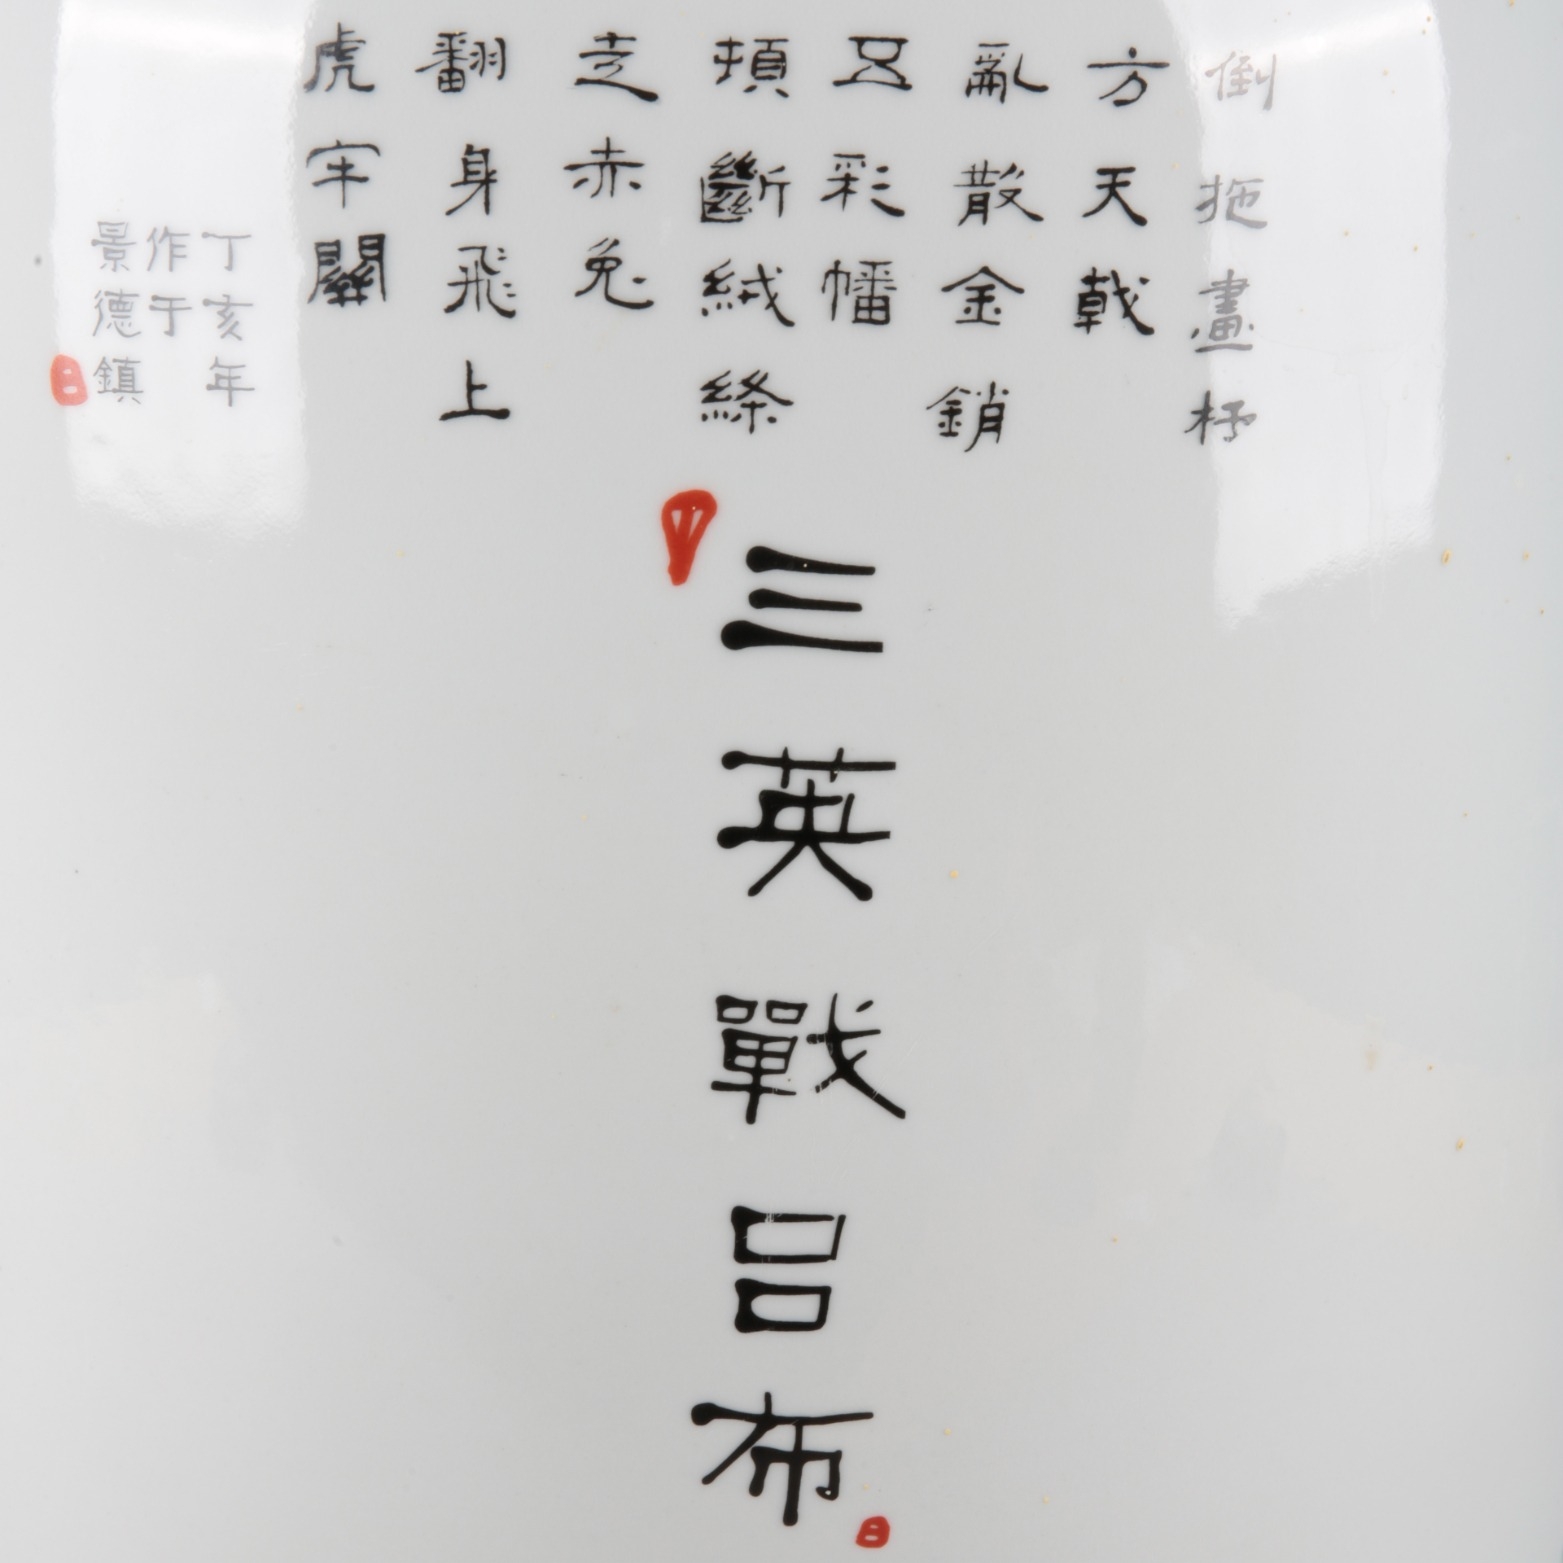 倒拖畫杆
方天戟
亂散金銷
五彩幡
頓斷絨絛
走赤兔
翻身飛上
虎牢關
丁亥年
作于
景德鎮
三英戰吕布